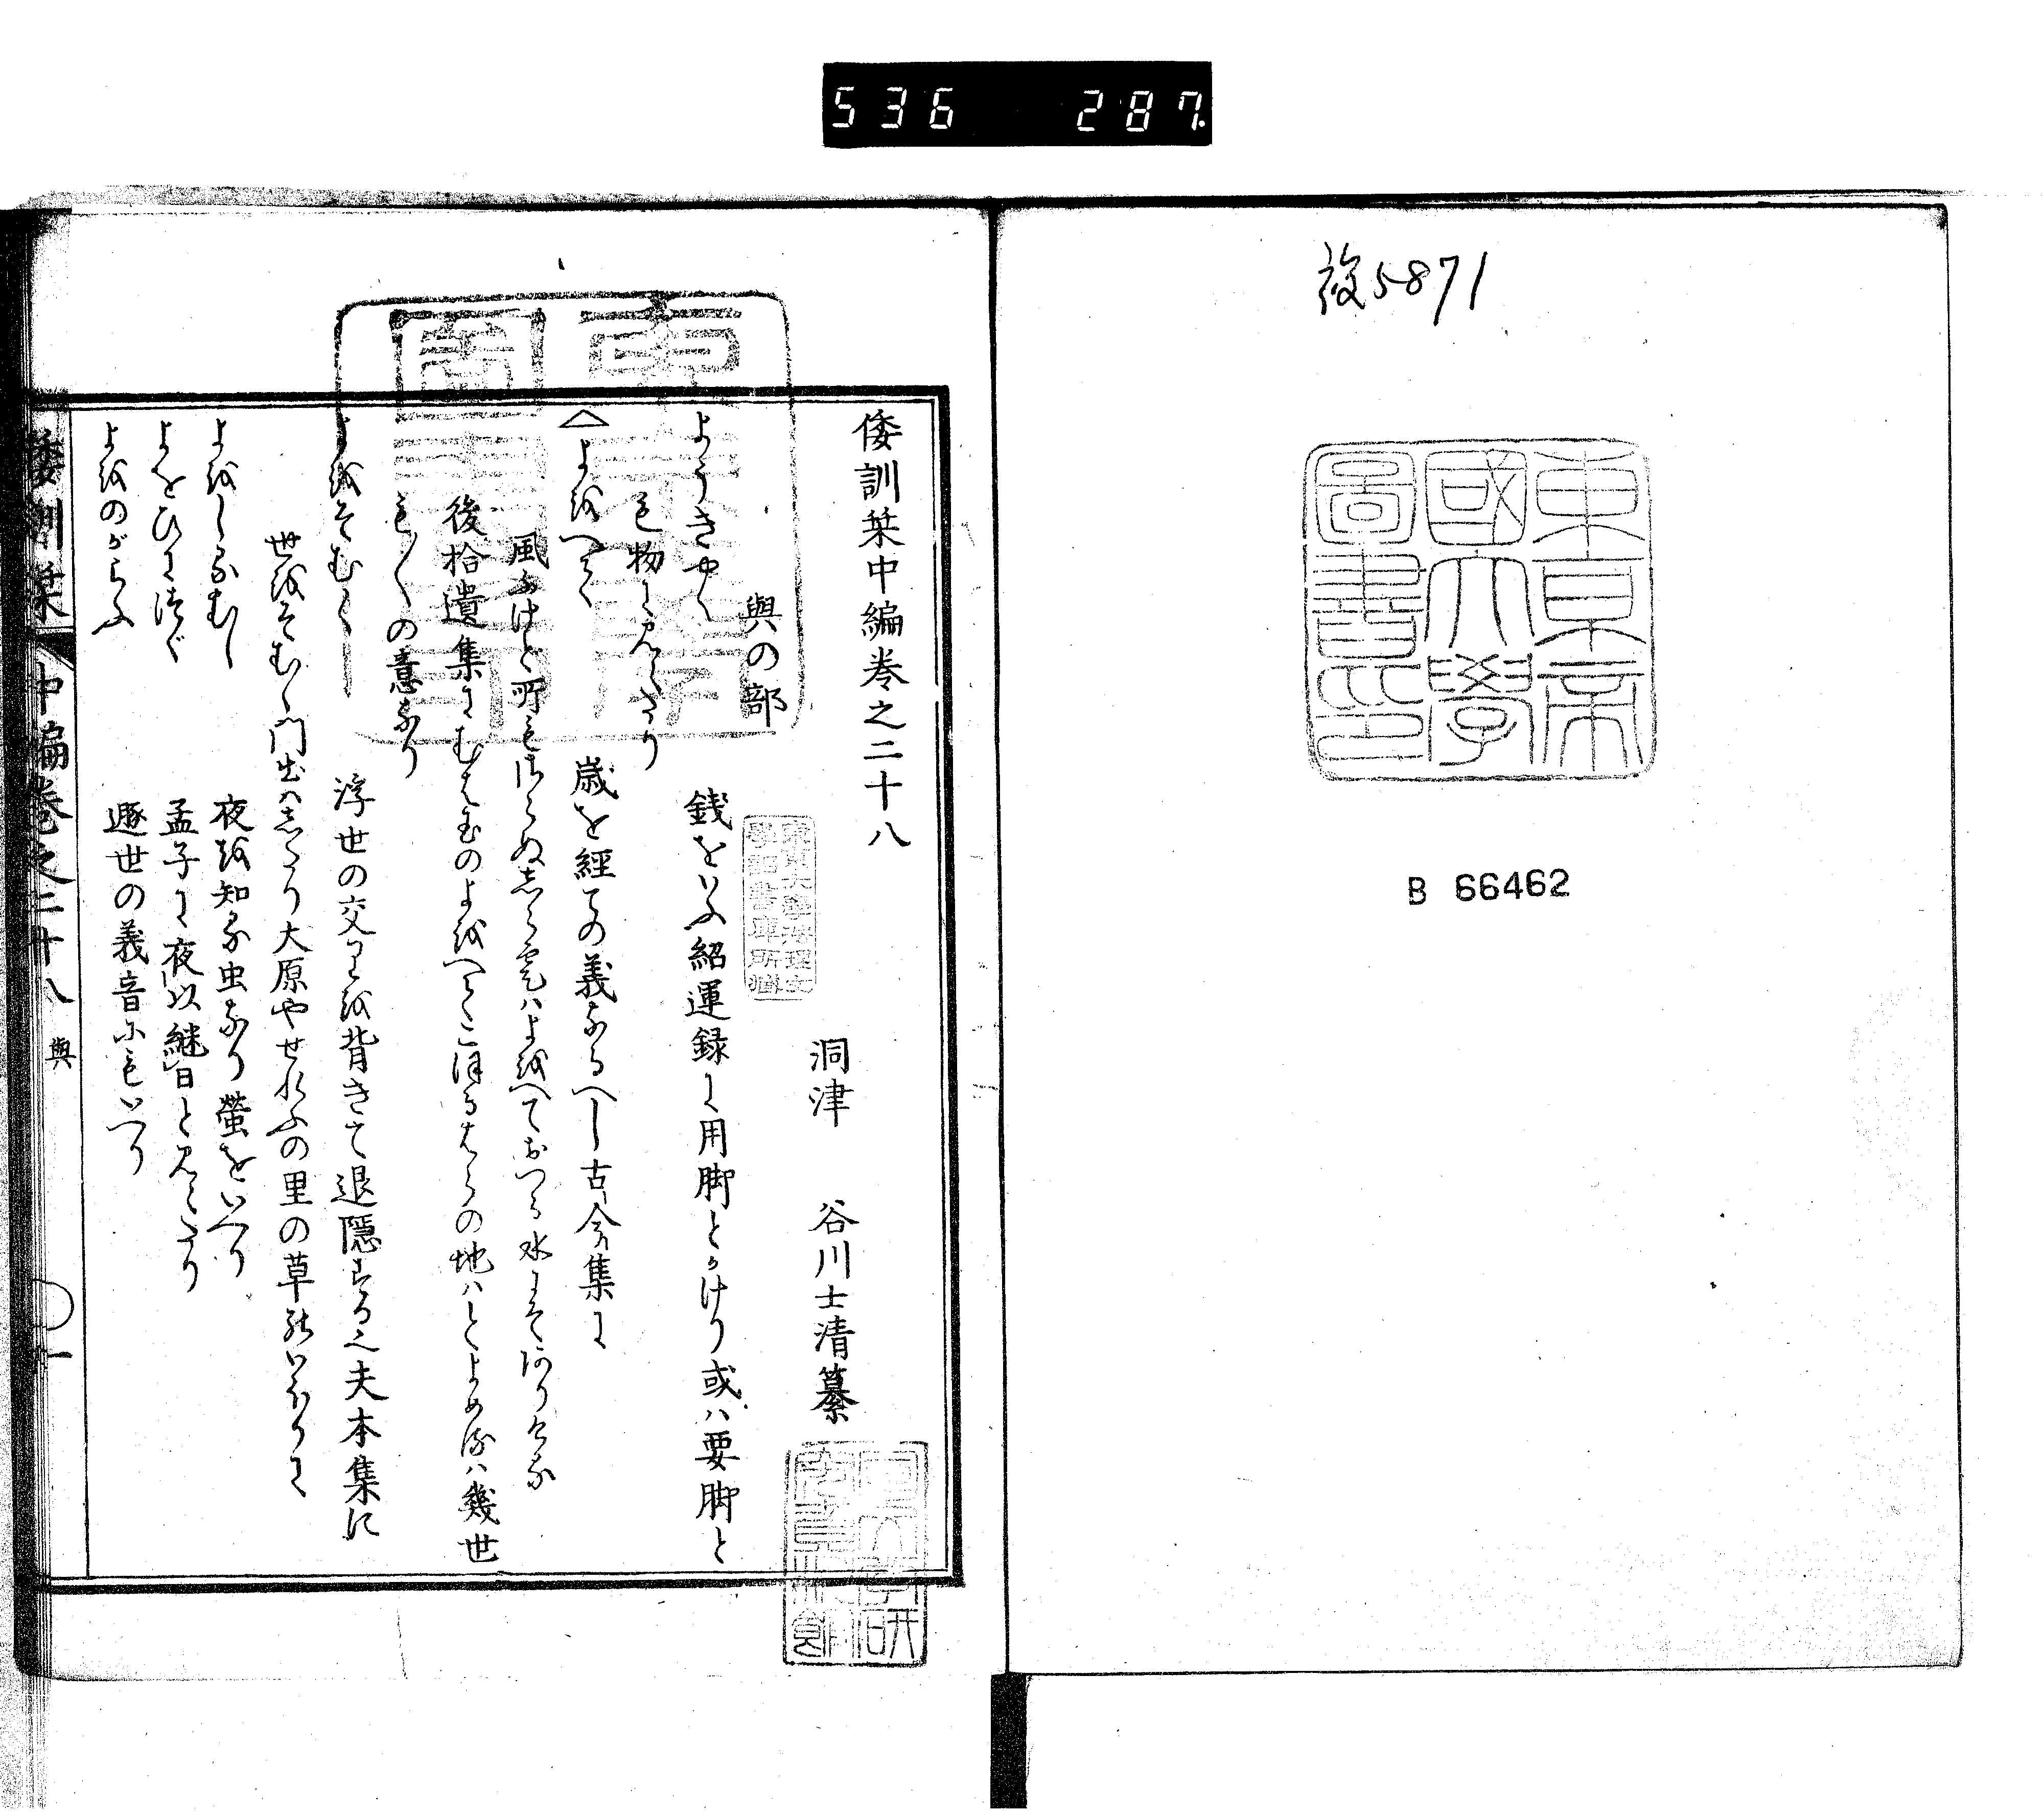 536 287
複5871
東京帝
國大學
圖書之印
B 66462
倭訓栞中編巻之二十八
洞津 谷川士清纂
與の部
ようきやく 銭をいふ紹運録に用脚とかけり或ハ要脚と
も物に見えたり
△よをへて 歳を経ての義なるへし古今集に
風ふけと所もさらぬしら雲ハよをへておつる水にそ有ける
後拾遺集にむさしのよをへて
の地ハとよめるハ幾世
も〳〵の意なり
よをそむく 浮世の交りを背きて退隠する也夫木集に
世をそむく門出ハしたり大原やせれふの里の草のいほりに
よをしるむし 夜を知る虫なり螢をいへり
よをひにつぐ 孟子に夜以継日と見えたり
よをのがらふ 遯世の義音にもいへり
倭訓栞 中編巻之二十八 與 一